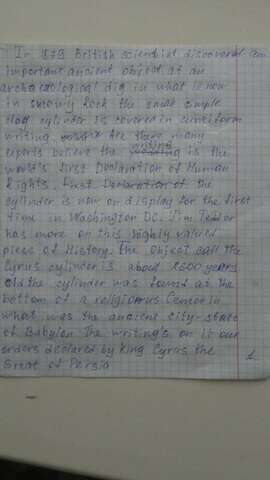 In 1879 British scientist discovered an
important ancient object at an
archaeological dig in what is now
in the small simple
clay cylinder is covered in cuneiform
writing are there many
experts believe the writing is the
world's First Declaration of Human
Rights. First Declaration of the
cylinder is now on display for the first
time in Washington DC. Jim Tedder
has more on this highly valued
piece of History. The object call the
Cyrus cylinder is about 2600 years
old the cylinder was found at the
bottom of a religiorus Cemor in
what was the ancient city-state
of Babylon The writing's on it our
orders declared by King Cyrus the
Great of Persia
1